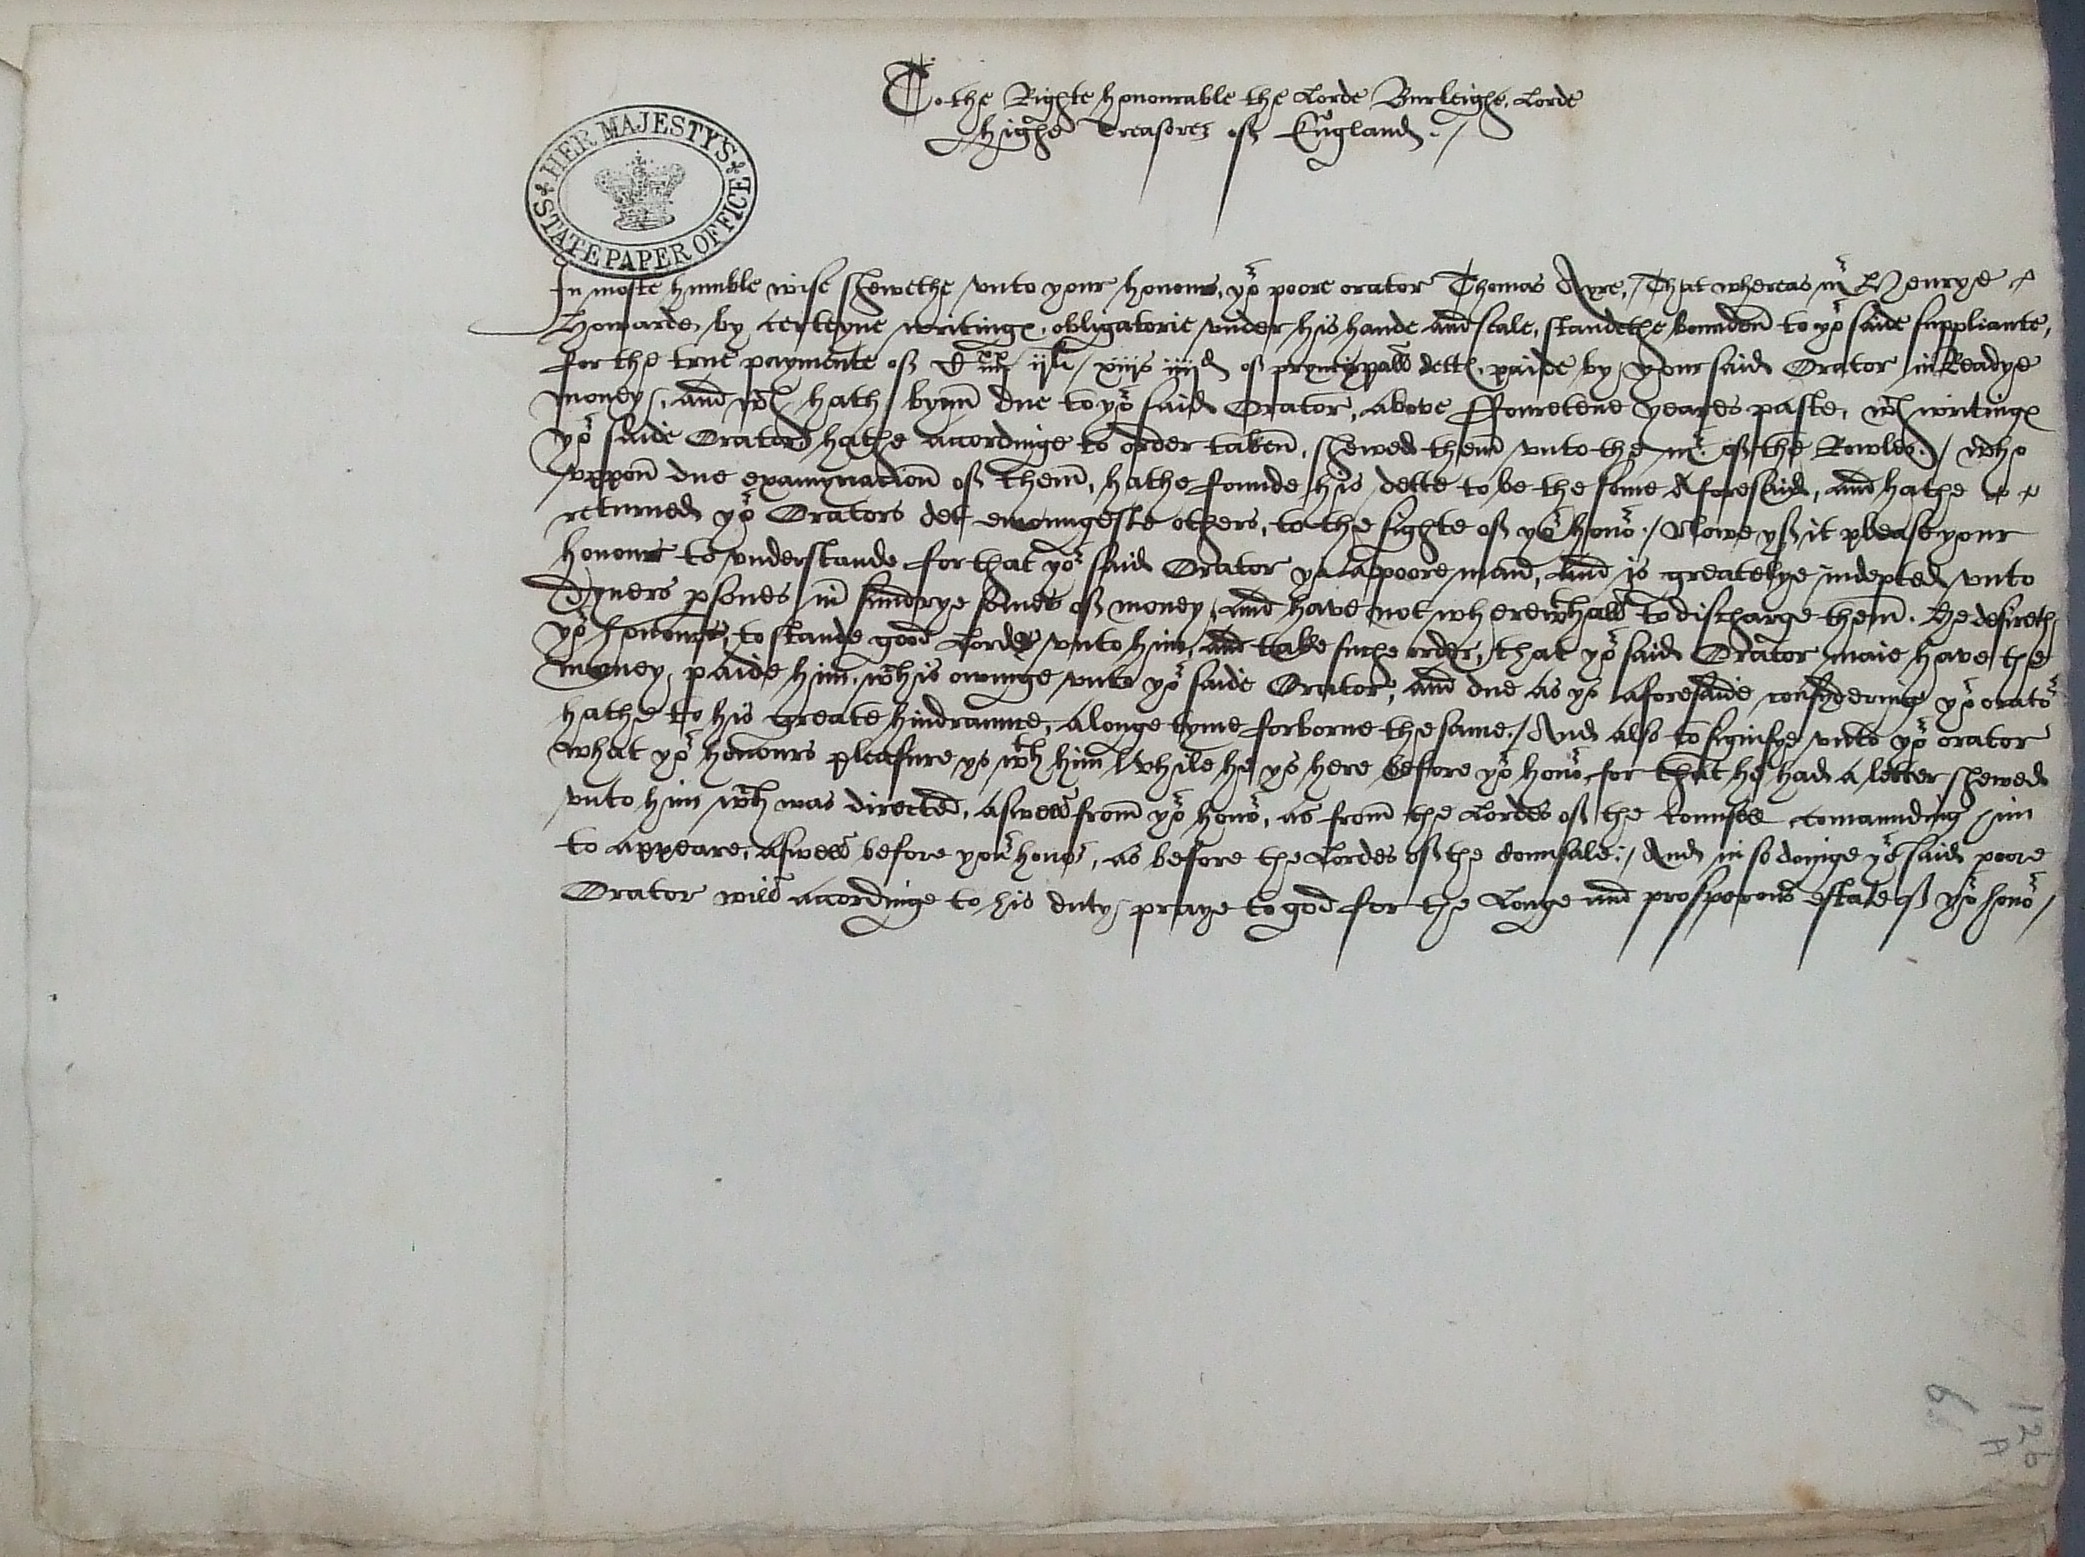 To the Righte honourable the Lorde Burleighe, Lorde
highe Treasorer of England ./
HER MAJESTY'S
STATE PAPER OFFICE
In moste humble wise shewethe vnto your honour, yor poore orator Thomas Ayre, / That whereas mr Henrye
Howarde, by certeyne writinges, obligatorie vnder his hande and seale, standethe bounden to yor saide suppliante,
for the true paymente of iili / xiijs iiijd of pryncypall dett, paide by your said Orator in Readye
money, and wch hath bynn due to yor said Orator, above ffouretene yeares paste, wch writinges
yor saide Orator hathe accordinge to order taken, shewed them vnto the mr of the Rowles. / who
vppon due examynacion of them, hathe founde his dette to be the some aforesaid, and hathe
returned yor Orators det emoungeste others, to the sighte of yor honor. / Nowe yf it please your
honour to vnderstande for that yor said Orator ys a poore man, and is greatelye indepted vnto
Dyuers psones in sundrye somes of money, and have not wherewthall to discharge them. He desireth
yor honour, to stande good Lorde vnto him, and take suche order, that yor said Orator maie have the
money, paide him, wch is owinge vnto yor saide Orator, and due as ys aforesaide, consyderinge yor orator
hathe to his greate hindraunce, a longe tyme forborne the same. / And also to signifye vnto yor orator
what yor honours pleasure ys wth him while he ys here before yor honor, for that he had a letter shewed
vnto him wch was directed, aswell from yor honor, as from the Lordes of the Counsell comaunding him
to appeare, aswell before your honor, as before the Lordes of the Counsale: / And in so doinge yor said poore
Orator will accordinge to his duty, praye to god for the Longe and prosperous estate of yor honor /
126
A